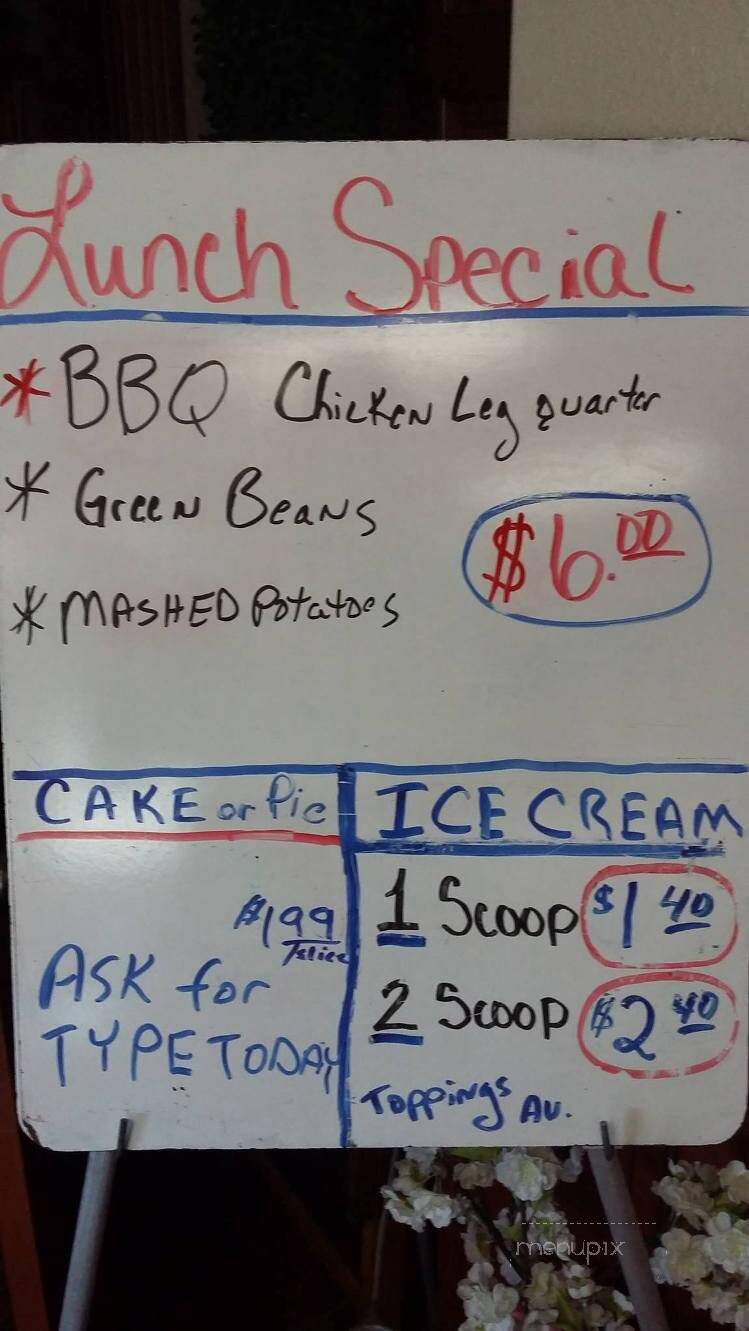 Lunch Special
* BBQ Chicken Leg quarter
* Green Beans
$6.00
* MASHED Potatoes
CAKE or Pie
$1.99
/slice
ASK for
TYPE TODAY
ICE CREAM
1 Scoop $1 40
2 Scoop $2 40
Toppings AV.
menupix